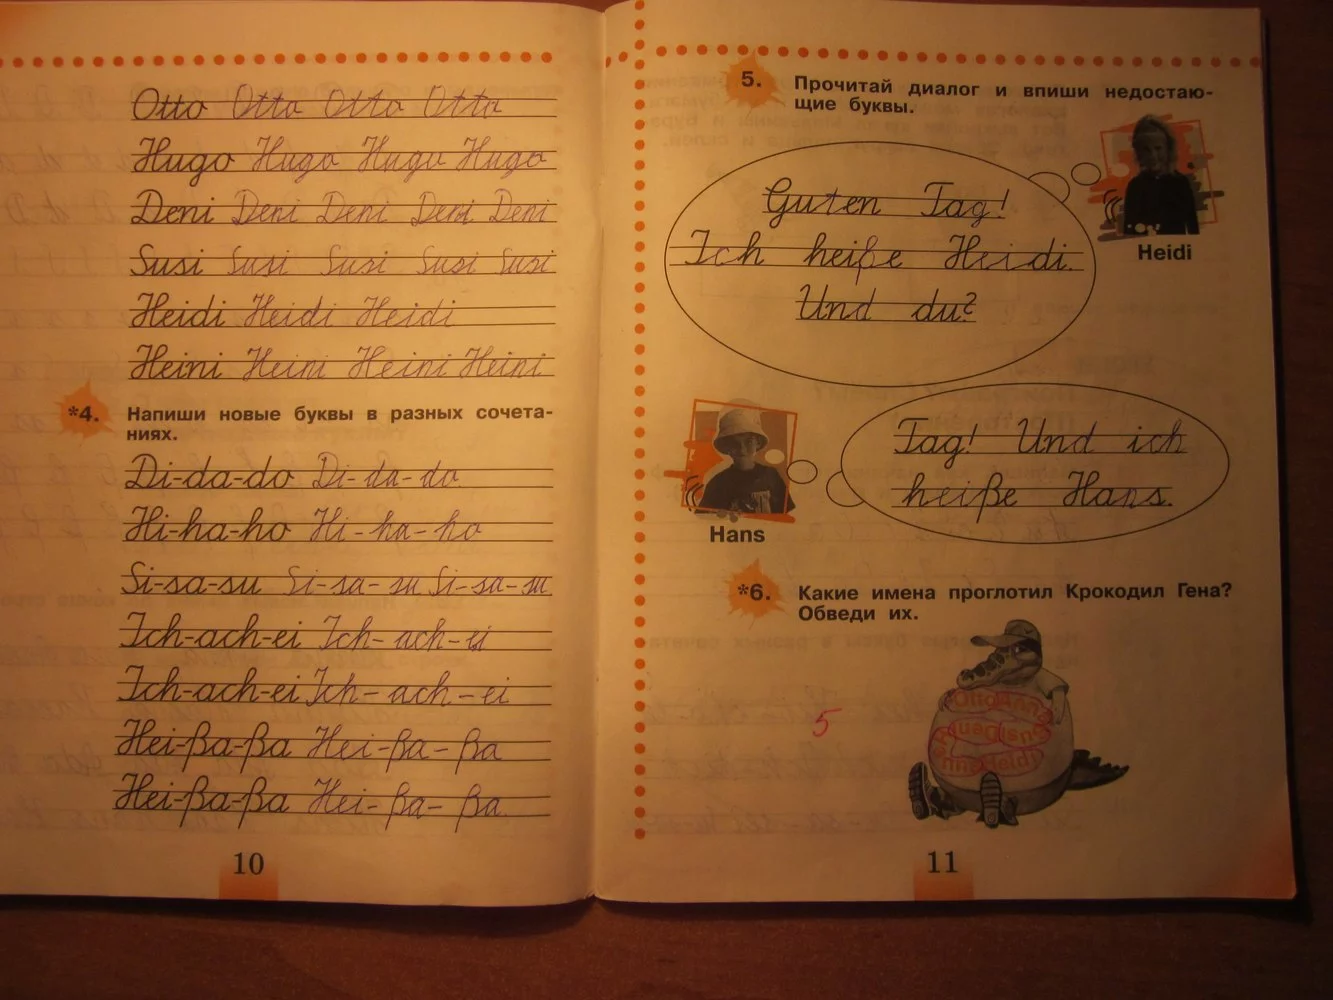 Otto Otto Otto Otto
Hugo Hugo Hugo Hugo
Deni Deni Deni Deni Deni
Susi Susi Susi Susi Susi
Heidi Heidi Heidi
Heini Heini Heini Heini
*4. Напиши новые буквы в разных сочета-
ниях.
Di-da-do Di-da-do
Hi-ha-ho Hi-ha-ho
Si-sa-su Si-sa-su Si-sa-su
Ich-ach-ei Ich-ach-ei
Ich-ach-ei Ich-ach-ei
Hei-ßa-ßa Hei-ßa-ßa
Hei-ßa-ßa Hei-ßa-ßa
10
5. Прочитай диалог и впиши недостаю-
щие буквы.
Guten Tag!
Ich heiße Heidi.
Und du?
Heidi
Tag! Und ich
heiße Hans.
Hans
*6. Какие имена проглотил Крокодил Гена?
Обведи их.
Otto Anna
5
11